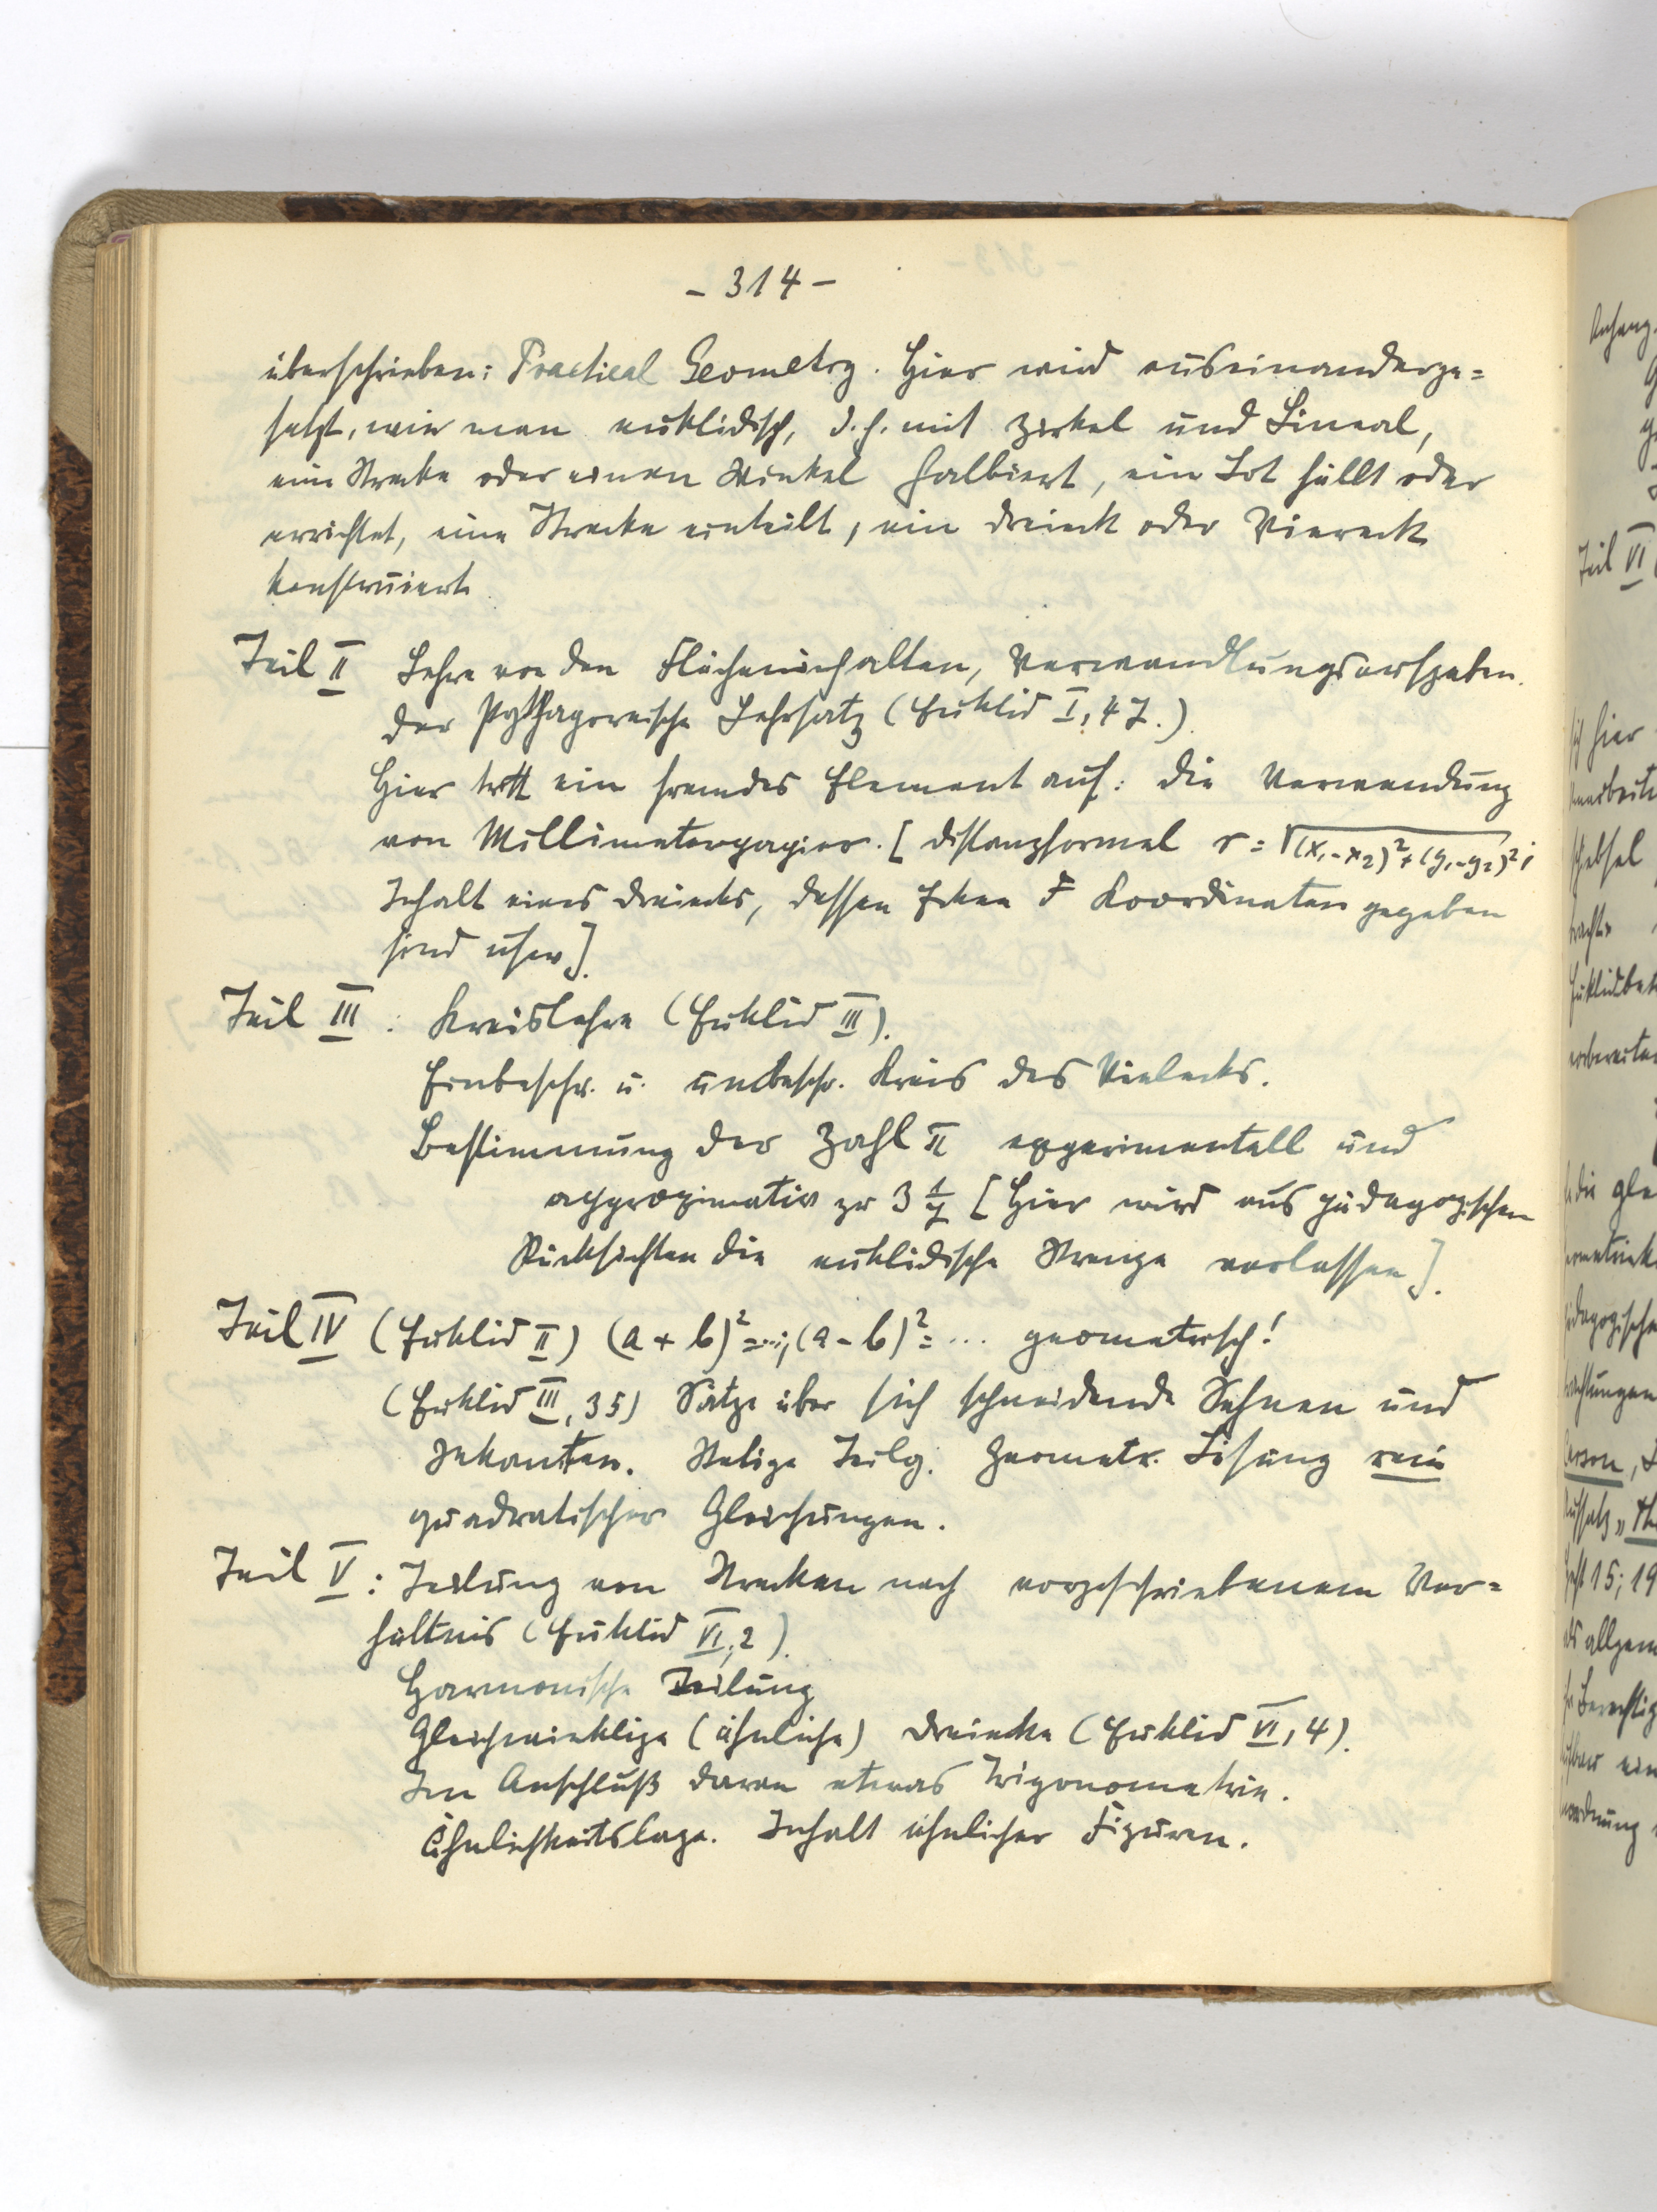 - 314 -
überschrieben: Practical Geometry. Hier wird auseinanderge=
setzt, wie man euklidisch, d.h. mit Zirkel und Lineal,
eine Strecke oder einen Winkel halbiert, ein Lot fällt oder
errichtet, eine Strecke einteilt, ein Dreieck oder Viereck
konstruiert.
Teil II Lehre von den Flächeninhalten, Verwandlungsaufgaben.
Der Pythagoreische Lehrsatz (Euklid I, 47.).
Hier tritt ein fremdes Element auf: die Verwendung
von Millimeterpapier. [Distanzformel r = √(x₁-x₂)²+(y₁-y₂)²;
Inhalt eines Dreiecks, dessen Ecken Koordinaten gegeben
sind usw].
Teil III : Kreislehre (Euklid III).
Einbeschr. u. umbeschr. Kreis des Vielecks.
Bestimmung der Zahl π experimentell und
approximativ zu 3 1/7 [Hier wird aus pädagogischen
Rücksichten die euklidische Strenge verlassen].
Teil IV (Euklid II) (a+b)² = ...; (a-b)² = ... geometrisch!
(Euklid III, 35) Sätze über sich schneidende Sehnen und
Sekanten. Stetige Teilg. Geometr. Lösung rein
quadratischer Gleichungen.
Teil V : Teilung von Strecken nach vorgeschriebenem Ver=
hältnis (Euklid VI, 2).
Harmonische Teilung
Gleichwinklige (ähnliche) Dreiecke (Euklid VI, 4).
Im Anschluß daran etwas Trigonometrie.
Ähnlichkeitslage. Inhalt ähnlicher Figuren.
Anhang
Teil VI
sich hier